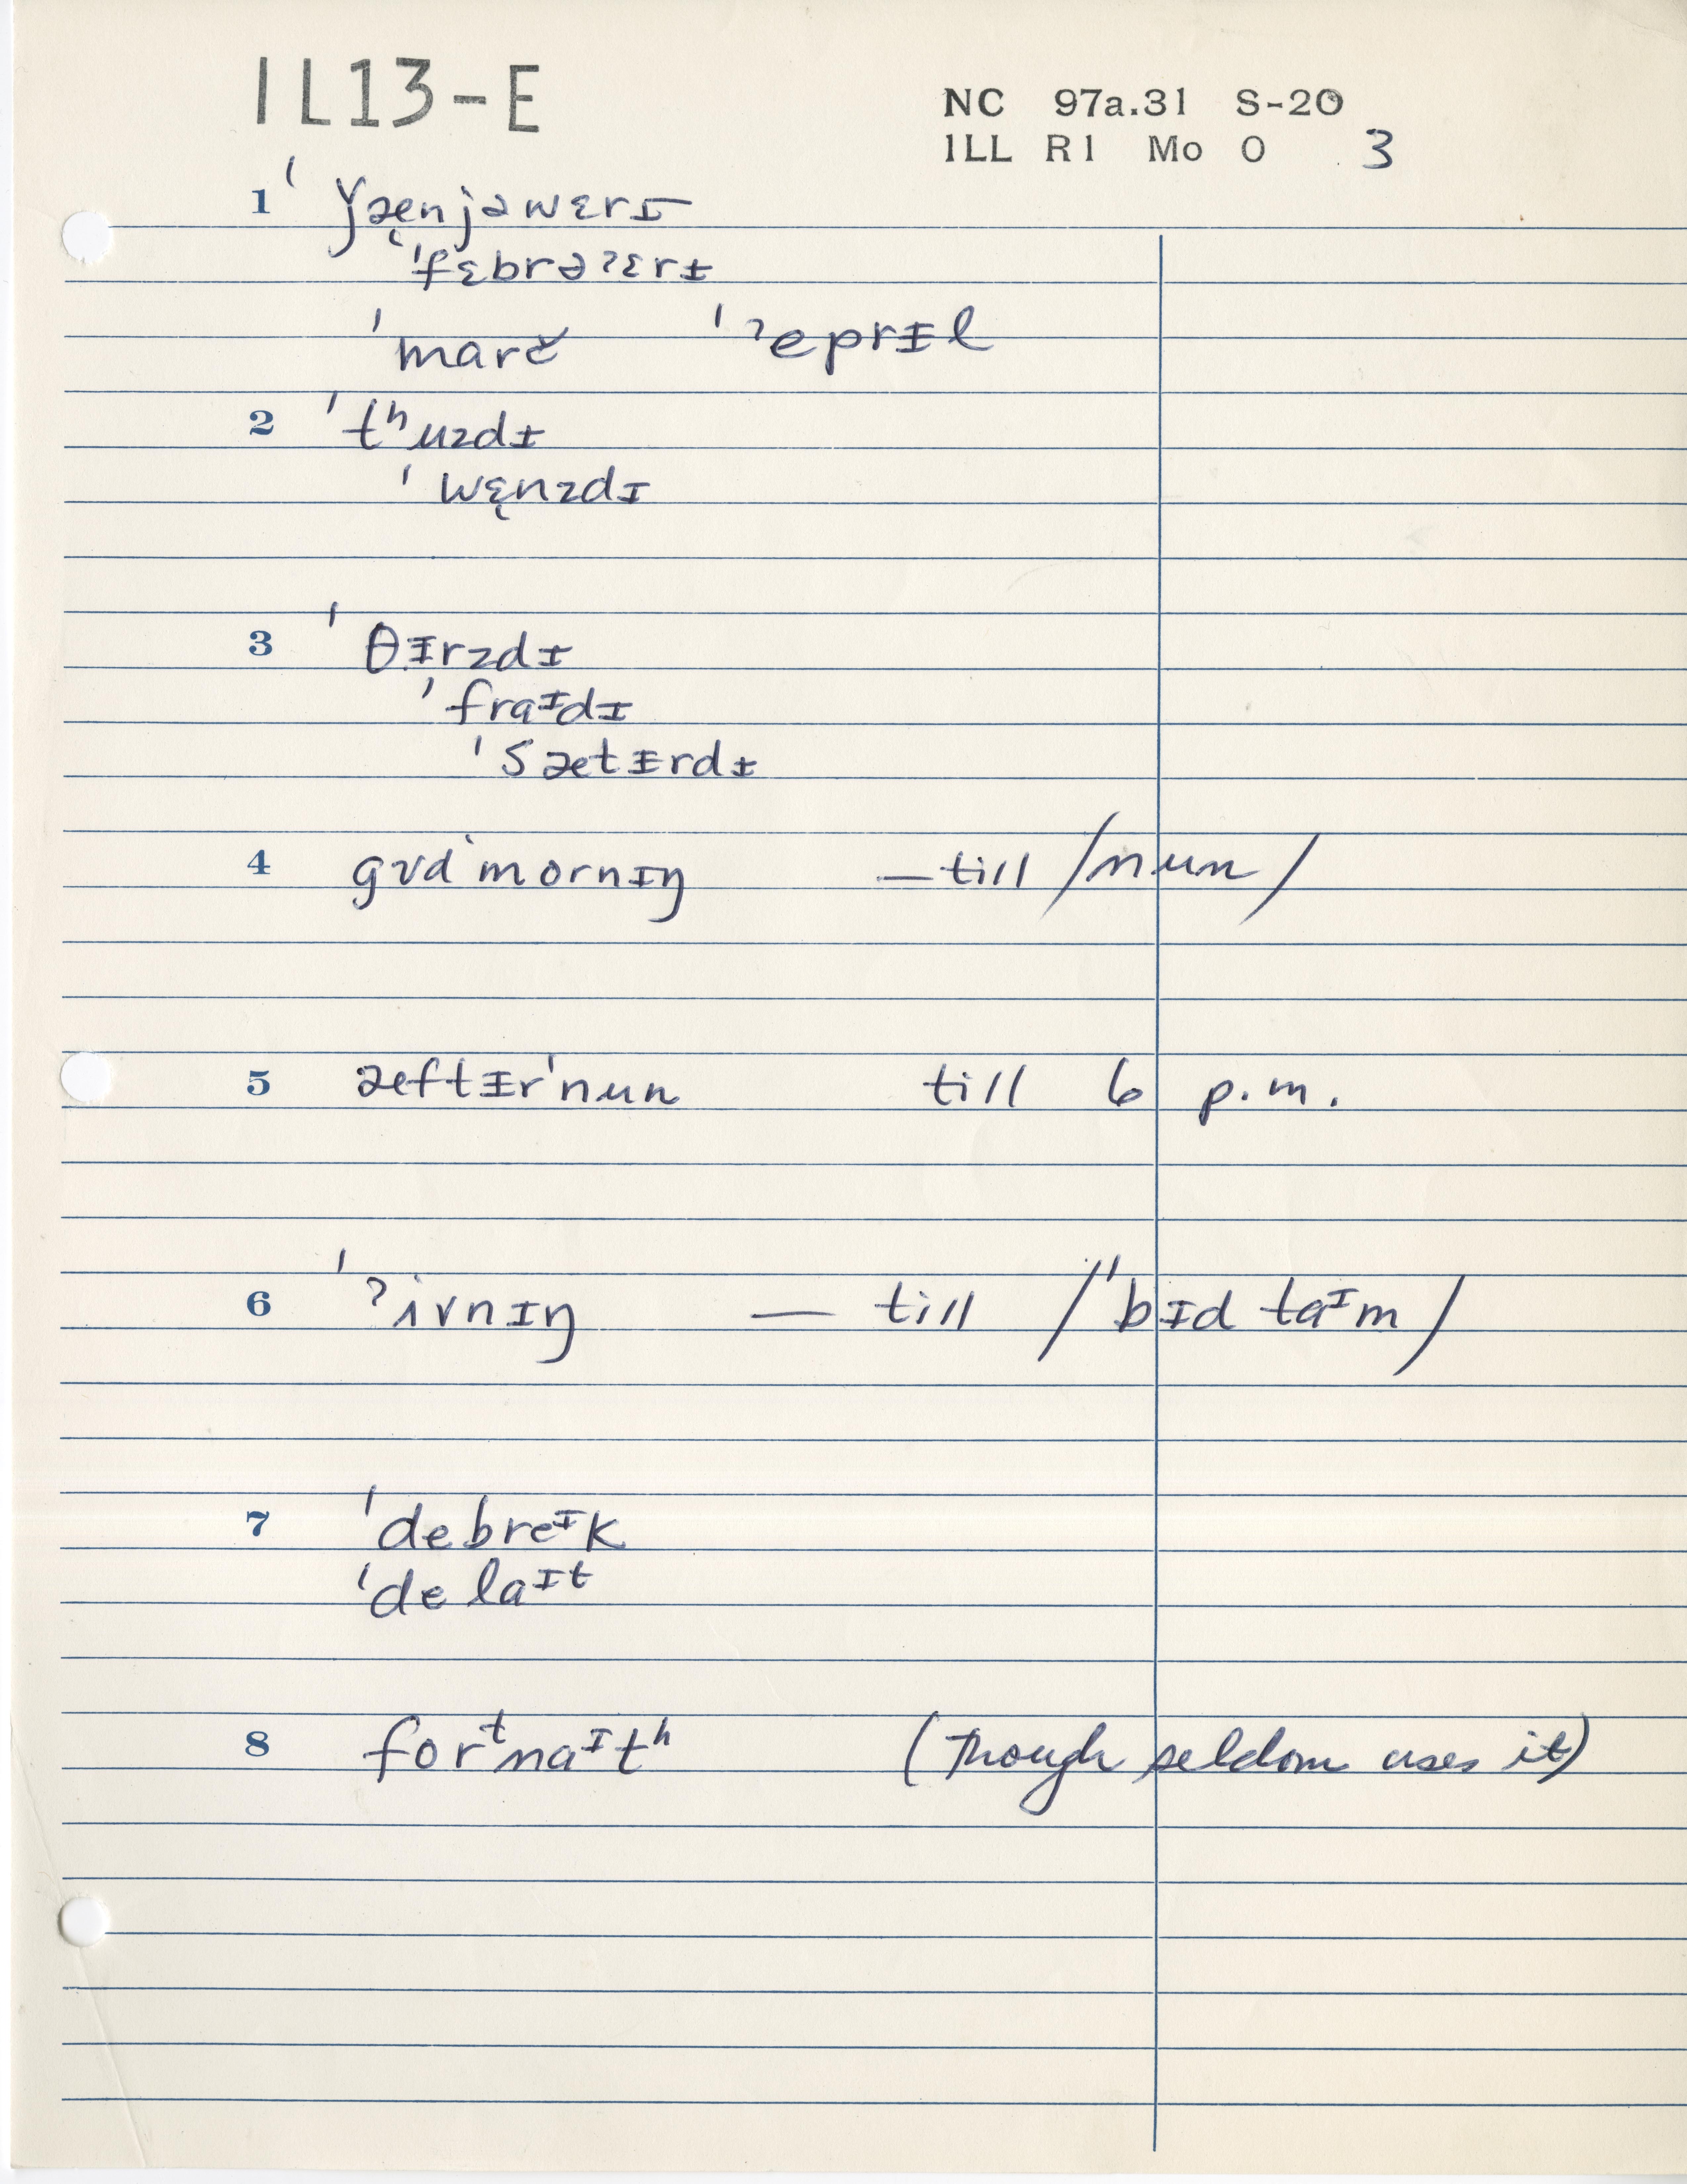 IL13-E
NC 97a.31 S-20
ILL R1 Mo O 3
1 ˈǰæ̨njəwɛrɪ
ˈfɛ̨brəʔɛrɪ
ˈmarč ˈʔeprɪl
2 ˈtʰuzdɪ
ˈwɛ̨nzdɪ
3 ˈθɪrzdɪ
ˈfraᶦdɪ
ˈsætɪrdɪ
4 gʊdˈmornɪŋ — till /nun/
5 æftɪrˈnun till 6 p.m.
6 ˈʔivnɪŋ — till /ˈbɪd taᶦm/
7 ˈdebreᶦk
ˈdelaᶦt
8 forᵗnaᶦtʰ (though seldom uses it)